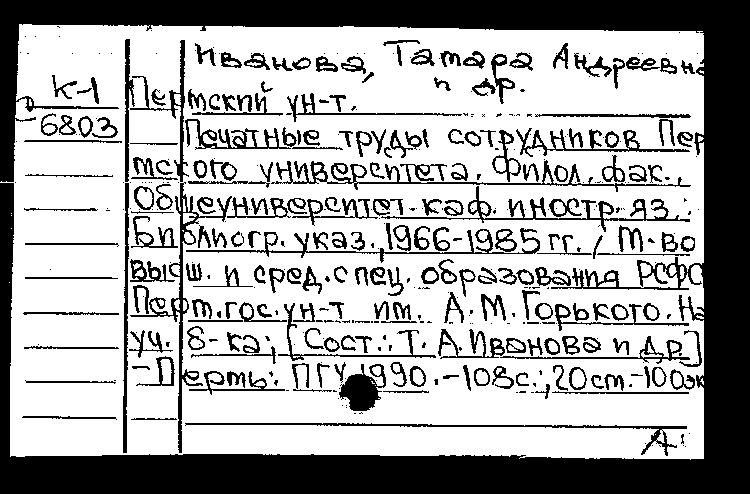 Иванова, Тамара Андреевна
и др.
К-1
6803
Пермский ун-т.
Печатные труды сотрудников Пер
мского университета. Филол. фак.,
Общеуниверситет. каф. иностр. яз.:
Библиогр. указ., 1966-1985 гг. / М-во
высш. и сред. спец. образования РСФС
Перм. гос. ун-т им. А. М. Горького. На
уч. б-ка; [Сост.: Т. А. Иванова и др.]
- Пермь: ПГУ, 1990. - 108 с.; 20 см. - 100 эк
А